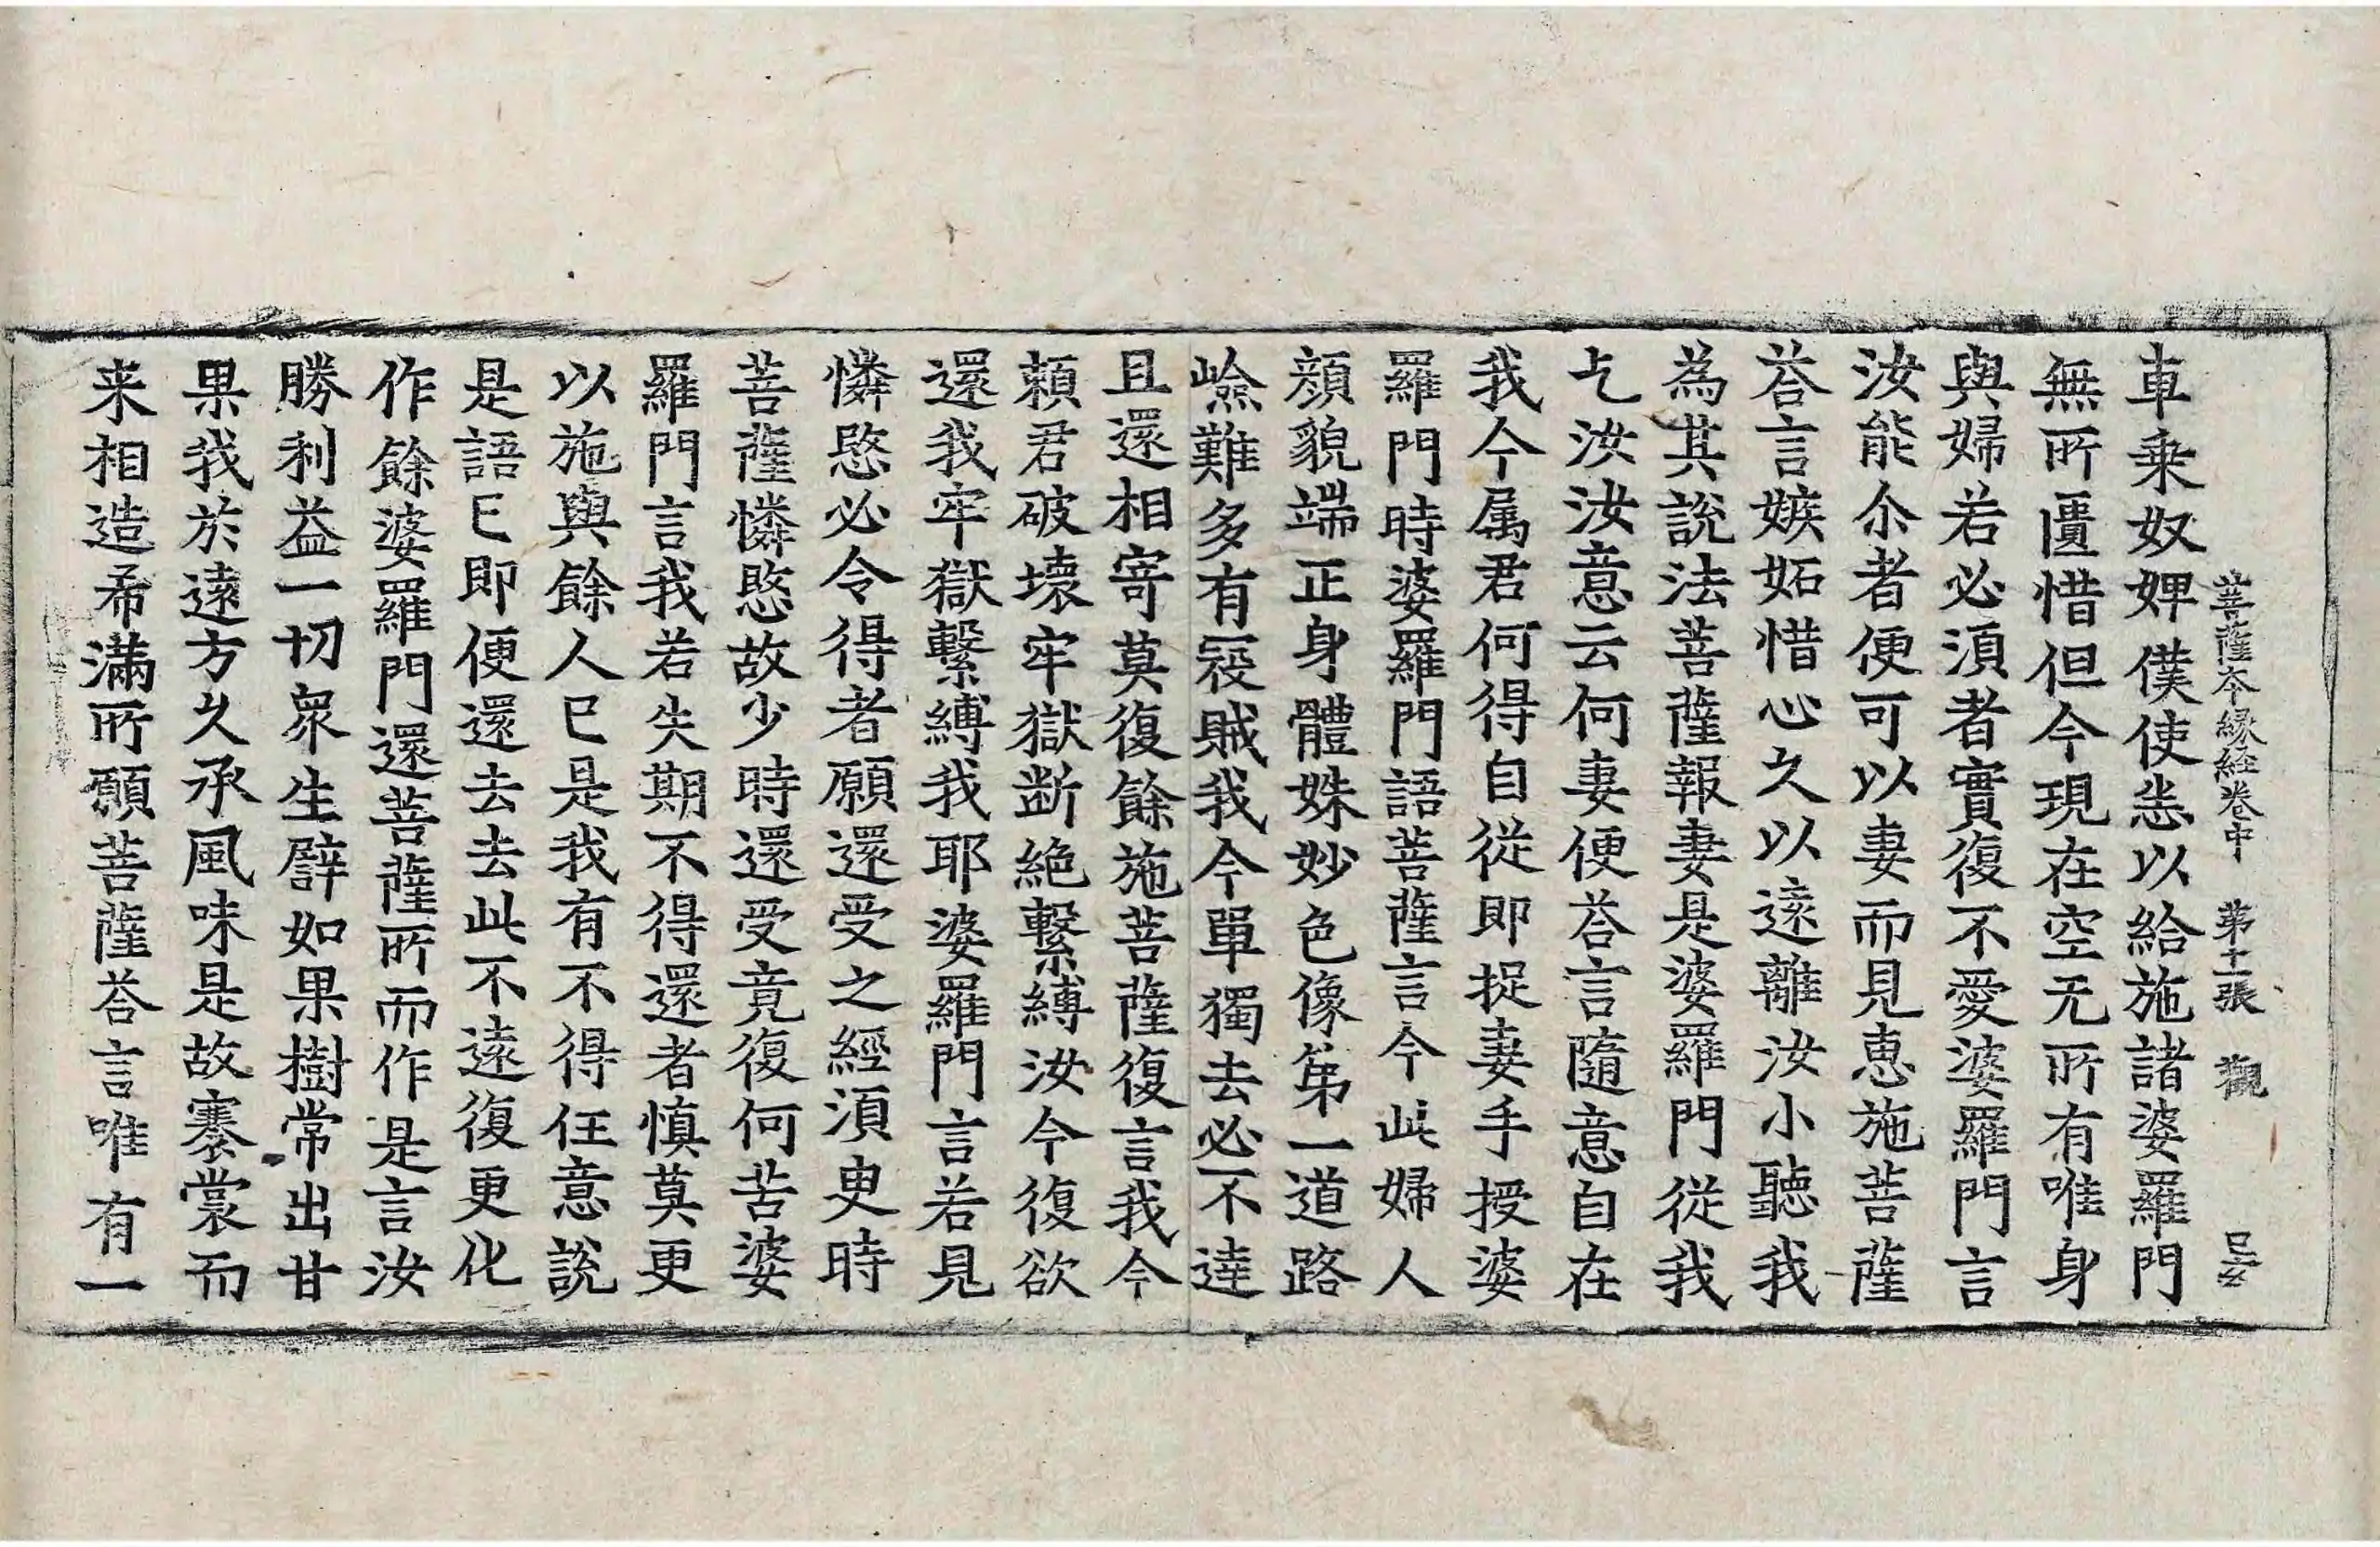 菩薩本縁経卷中 第十一張 觀
車乗奴婢僕使悉以給施諸婆羅門
無所匱惜但今現在空无所有唯身
與婦若必湏者實復不愛婆羅門言
汝能尒者便可以妻而見惠施菩薩
荅言嫉妬惜心久以逺離汝小聽我
為其說法菩薩報妻是婆羅門従我
乞汝汝意云何妻便荅言隨意自在
我今属君何得自從即捉妻手授婆
羅門時婆羅門語菩薩言今此婦人
顔貌端正身體姝妙色像苐一道路
嶮難多有㓂賊我今單獨去必不達
且還相寄莫復餘施菩薩復言我今
頼君破壊牢獄断絶繫縛汝今復欲
還我牢獄繫縛我耶婆羅門言若見
憐愍必令得者願還受之經湏臾時
菩薩憐愍故少時還受竟復何苦婆
羅門言我若失期不得還者慎莫更
以施與餘人已是我有不得任意說
是語已即便還去去此不逺復更化
作餘婆羅門還菩薩所而作是言汝
勝利益一切衆生譬如果樹常出甘
果我於逺方久承風味是故褰裳而
来相造希滿所願菩薩荅言唯有一